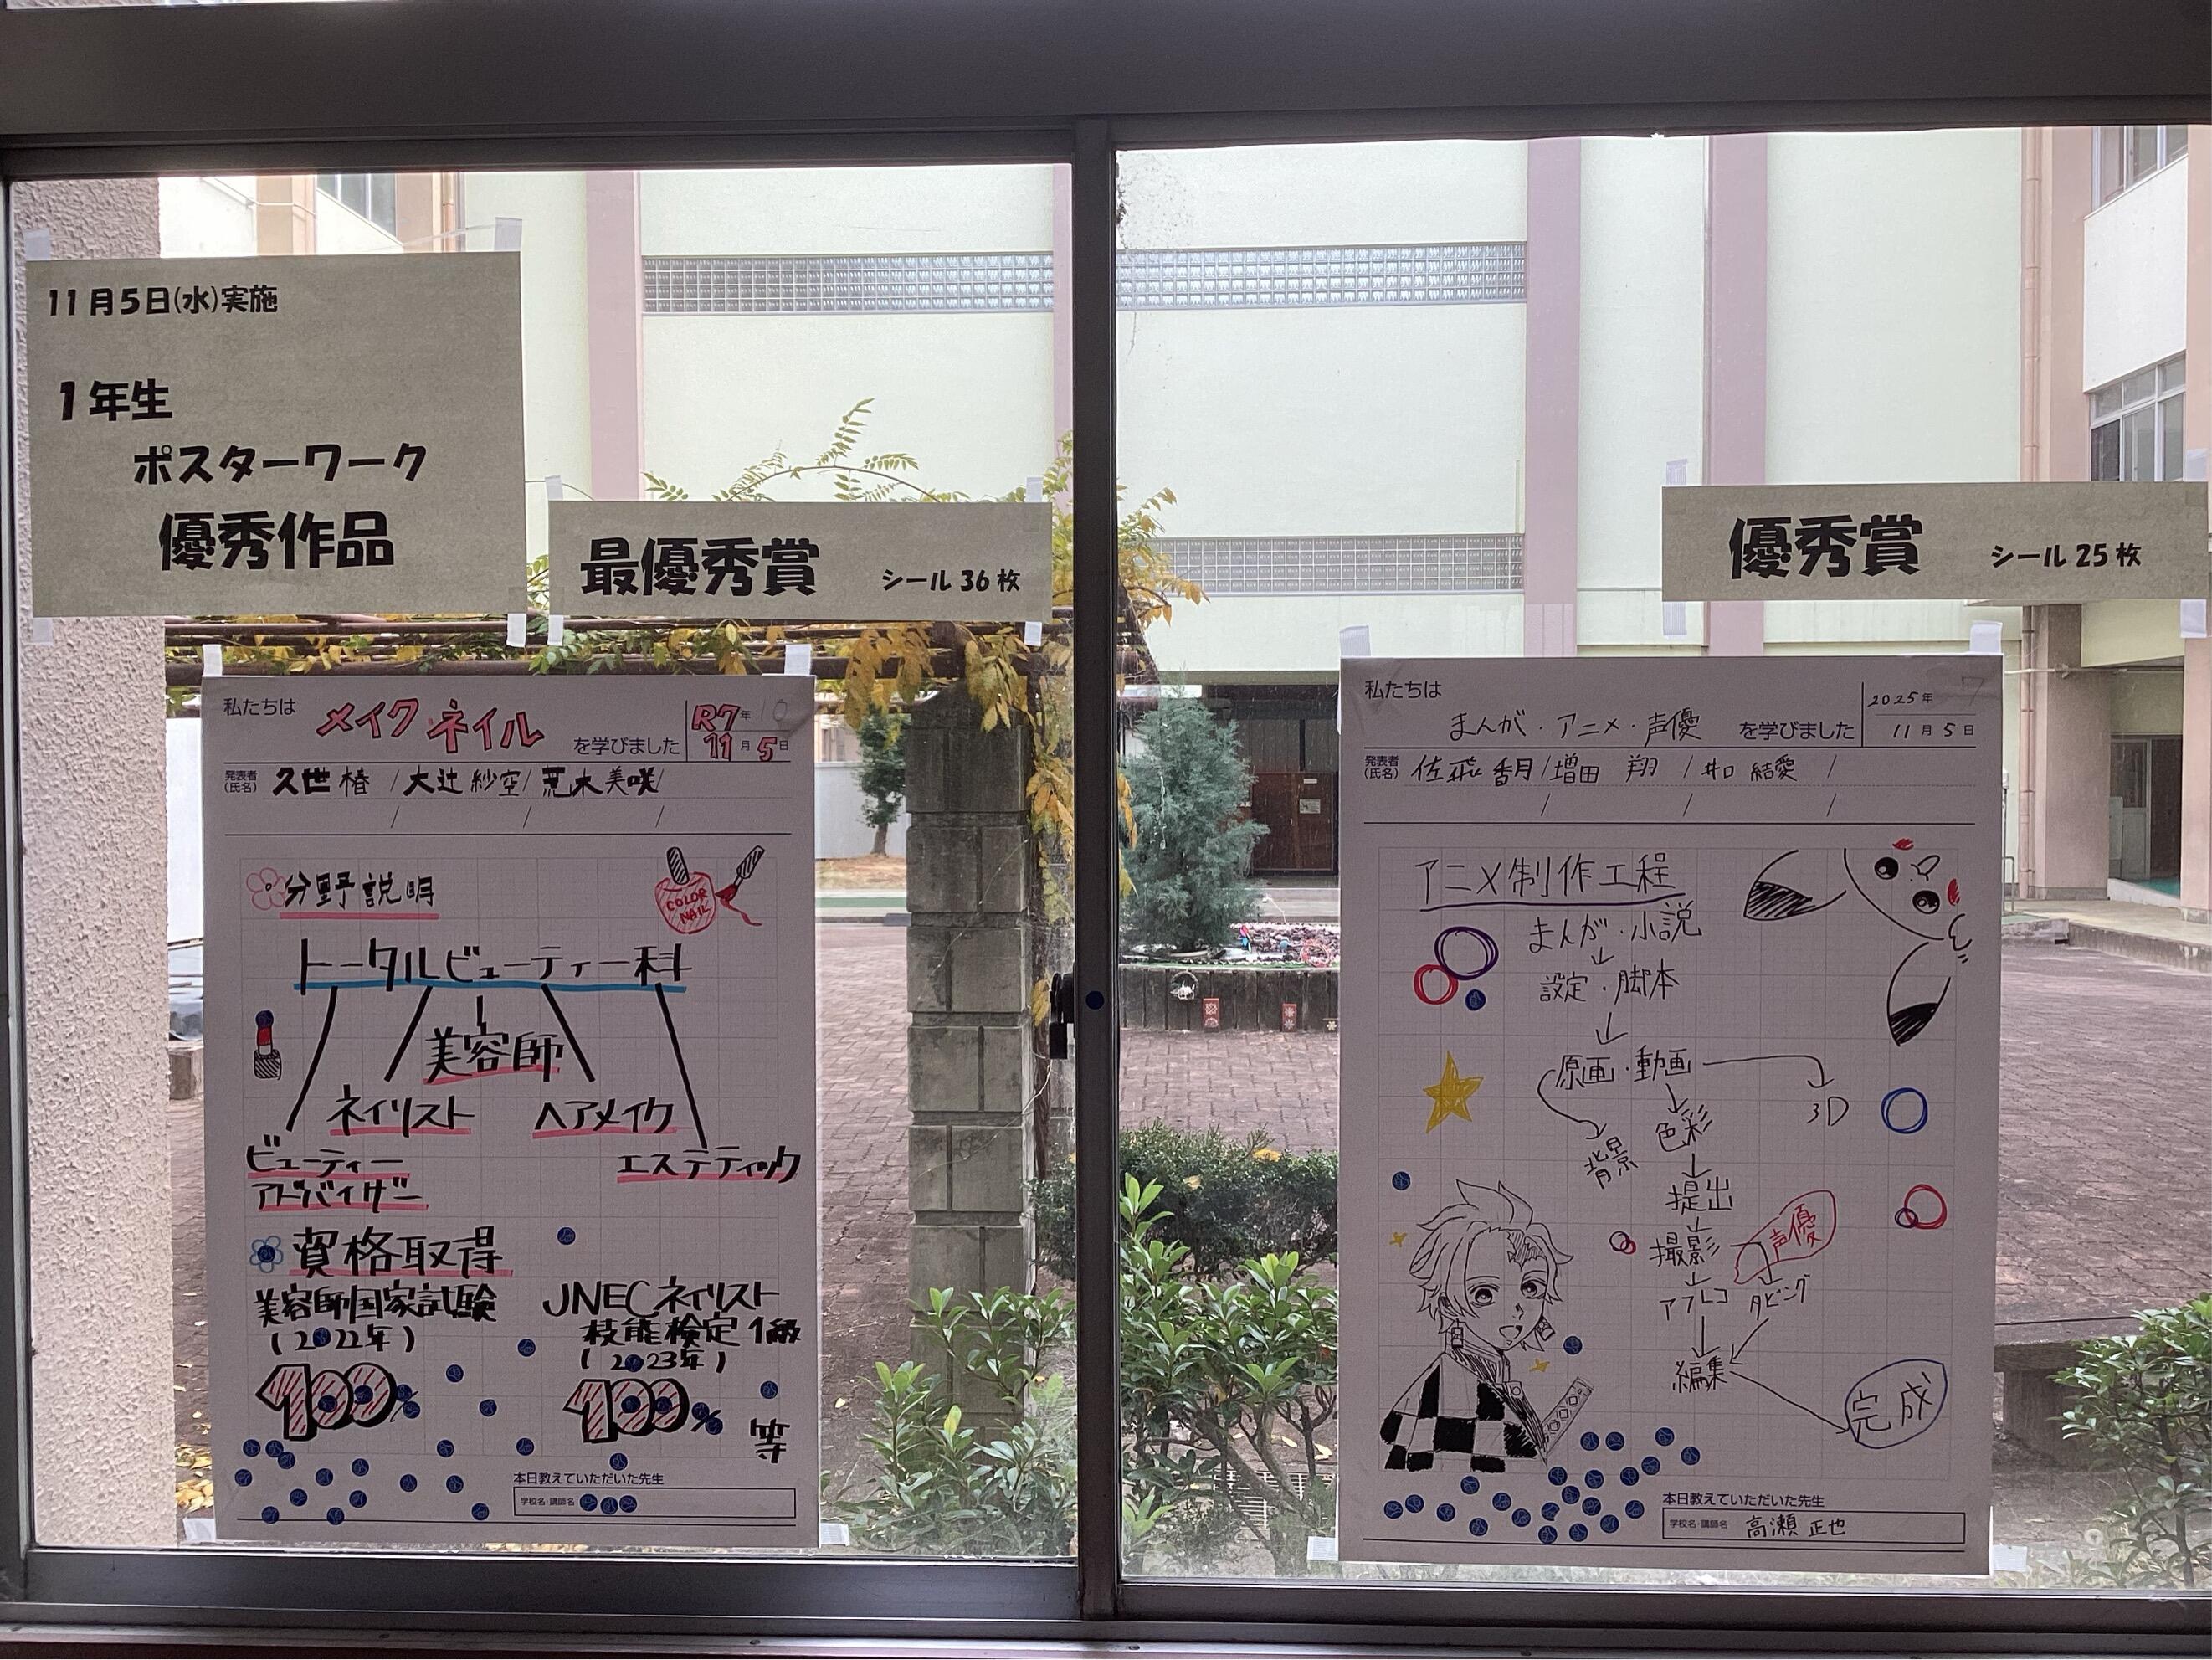 11月5日(水)実施
1年生
ポスターワーク
優秀作品
最優秀賞 シール36枚
私たちは メイク・ネイル を学びました
R7年 10
11月5日
発表者(氏名) 久世 椿 / 大辻 紗空 / 荒木 美咲 /
分野説明
COLOR NAIL
トータルビューティー科
美容師
ネイリスト ヘアメイク
ビューティーアドバイザー
エステティック
資格取得
美容師国家試験
(2022年)
100%
JNECネイリスト
技能検定1級
(2023年)
100%
等
本日教えていただいた先生
学校名・講師名
優秀賞 シール25枚
私たちは まんが・アニメ・声優 を学びました
2025年 7
11月5日
発表者(氏名) 佐飛 香月 / 増田 翔 / 井口 結愛 /
アニメ制作工程
まんが・小説
設定・脚本
原画・動画
3D
色彩
背景
提出
声優
撮影
アフレコ ダビング
編集
完成
本日教えていただいた先生
学校名・講師名 高瀬 正也